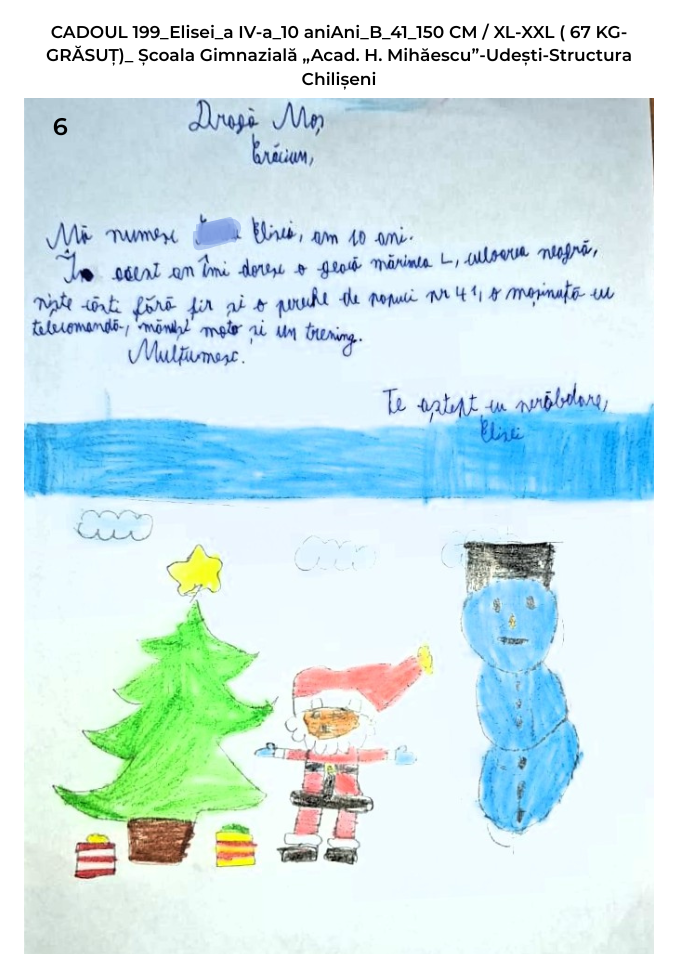 CADOUL 199_Elisei_a IV-a_10 aniAni_B_41_150 CM / XL-XXL ( 67 KG-
GRĂSUȚ)_ Școala Gimnazială „Acad. H. Mihăescu”-Udești-Structura
Chilișeni
6
Dragă Moș
Crăciun,
Mă numesc Elisei, am 10 ani.
În acest an îmi doresc o geacă mărimea L, culoarea neagră,
niște căști fără fir și o pereche de papuci nr 41, o mașinuță cu
telecomandă, mănuși moto și un trening.
Mulțumesc.
Te aștept cu nerăbdare,
Elisei